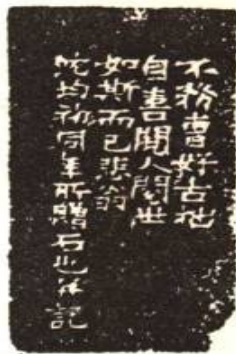 不務曹好古拙
自喜閒人閱世
如斯而已悲翁
沈均初同年所贈石也并記